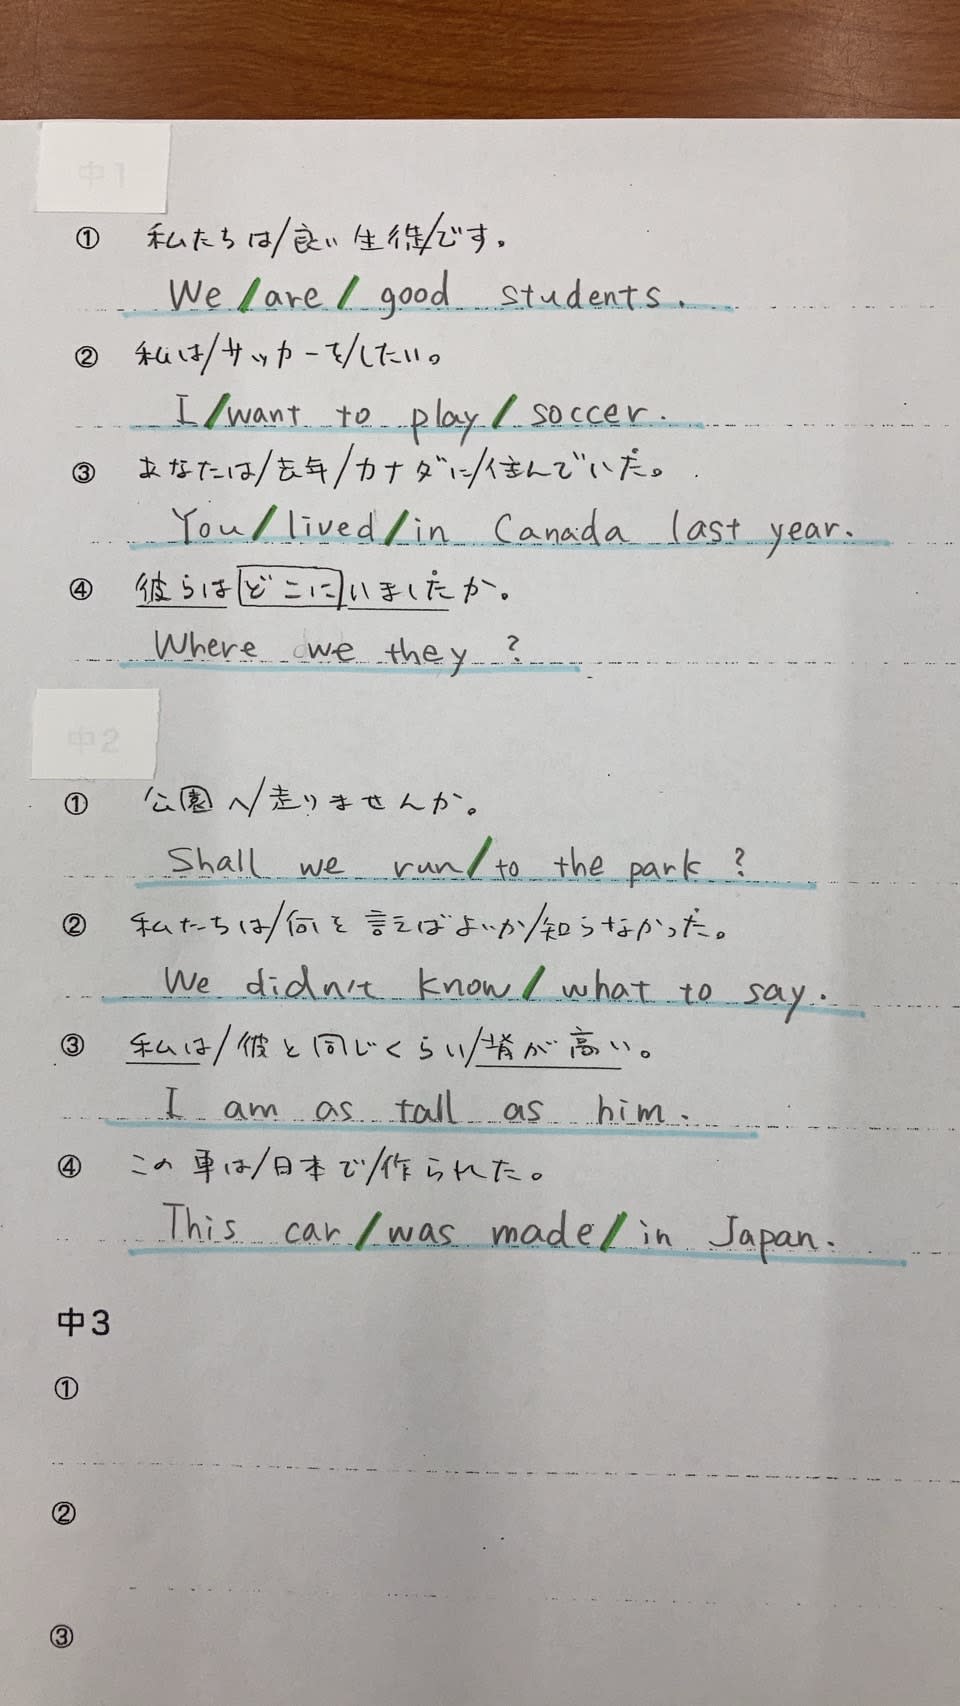 中1
① 私たちは/良い生徒/です。
We/are/good students.
② 私は/サッカーを/したい。
I/want to play/soccer.
③ あなたは/去年/カナダに/住んでいた。
You/lived/in Canada last year.
④ 彼らはどこにいましたか。
Where we they?
中2
① 公園へ/走りませんか。
Shall we run/to the park?
② 私たちは/何を言えばよいか/知らなかった。
We didn't know/what to say.
③ 私は/彼と同じくらい/背が高い。
I am as tall as him.
④ この車は/日本で/作られた。
This car/was made/in Japan.
中3
①
②
③